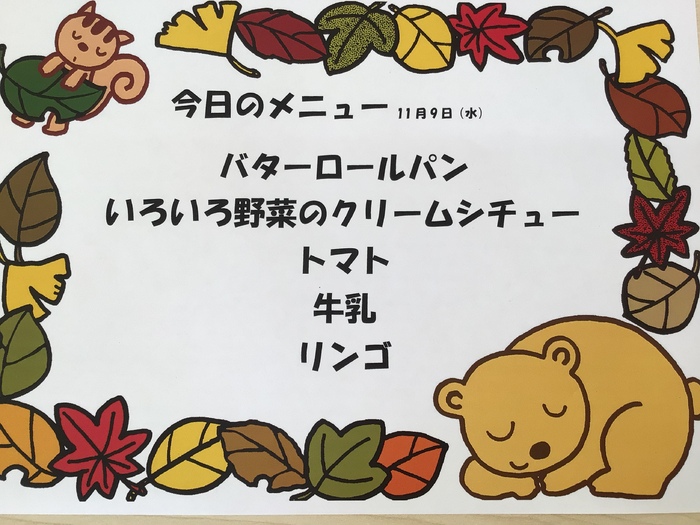 今日のメニュー 11月9日（水）
バターロールパン
いろいろ野菜のクリームシチュー
トマト
牛乳
リンゴ